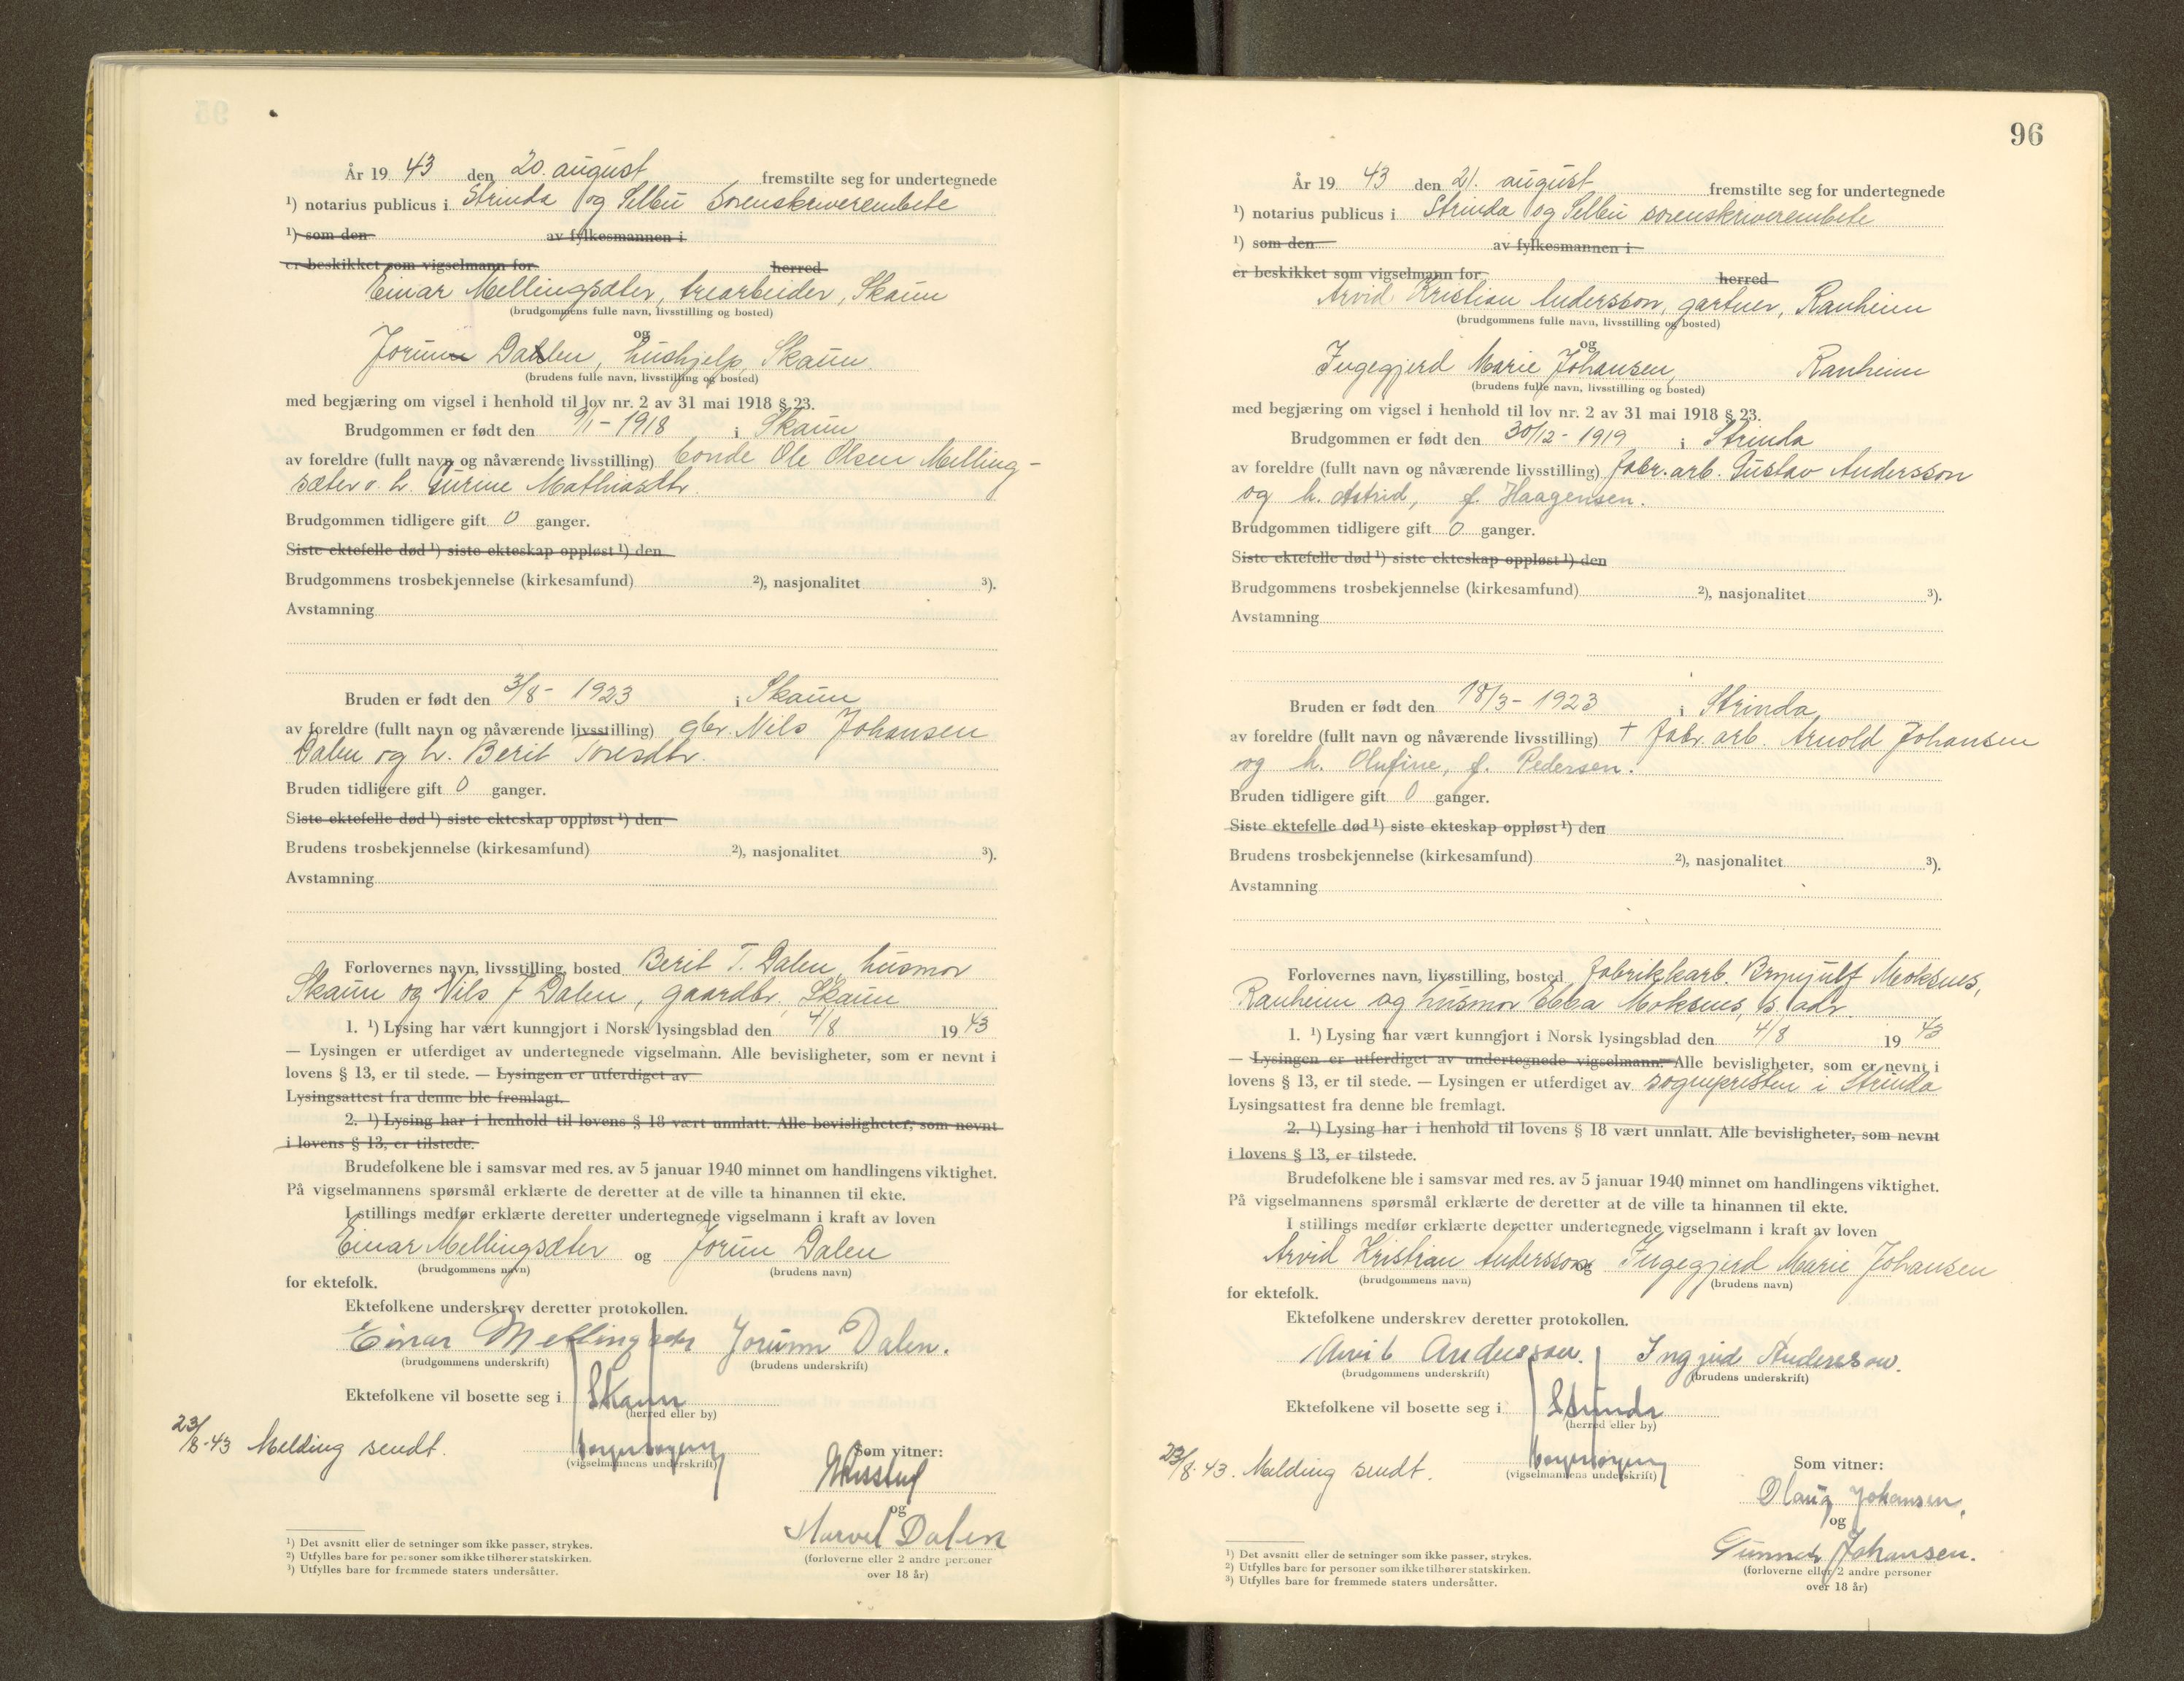 År 19 43 den 20. august fremstilte seg for undertegnede
¹) notarius publicus i Strinda og Selbu Sorenskriverembete
¹) som den av fylkesmannen i
er beskikket som vigselmann for herred
Einar Mellingsæter, trearbeider, Skaun
(brudgommens fulle navn, livsstilling og bosted)
og
Jorun Dalen, hushjelp, Skaun.
(brudens fulle navn, livsstilling og bosted)
med begjæring om vigsel i henhold til lov nr. 2 av 31 mai 1918 § 23.
Brudgommen er født den 9/1 - 1918 i Skaun
av foreldre (fullt navn og nåværende livsstilling) bonde Ole Olsen Melling-
sæter o. h. Gurine Mathiasdtr.
Brudgommen tidligere gift 0 ganger.
Siste ektefelle død ¹) siste ekteskap oppløst ¹) den
Brudgommens trosbekjennelse (kirkesamfund) ²), nasjonalitet ³).
Avstamning
Bruden er født den 3/8 - 1923 i Skaun
av foreldre (fullt navn og nåværende livsstilling) gbr. Nils Johansen
Dalen og h. Berit Toresdtr.
Bruden tidligere gift 0 ganger.
Siste ektefelle død ¹) siste ekteskap oppløst ¹) den
Brudens trosbekjennelse (kirkesamfund) ²), nasjonalitet ³).
Avstamning
Forlovernes navn, livsstilling, bosted Berit T. Dalen, husmor
Skaun og Nils J Dalen, gaardbr, Skaun
1. ¹) Lysing har vært kunngjort i Norsk lysingsblad den 4/8 19 43
— Lysingen er utferdiget av undertegnede vigselmann. Alle bevisligheter, som er nevnt i
lovens § 13, er til stede. — Lysingen er utferdiget av
Lysingsattest fra denne ble fremlagt.
2. ¹) Lysing har i henhold til lovens § 18 vært unnlatt. Alle bevisligheter, som nevnt
i lovens § 13, er tilstede.
Brudefolkene ble i samsvar med res. av 5 januar 1940 minnet om handlingens viktighet.
På vigselmannens spørsmål erklærte de deretter at de ville ta hinannen til ekte.
I stillings medfør erklærte deretter undertegnede vigselmann i kraft av loven
Einar Mellingsæter og Jorun Dalen
(brudgommens navn) (brudens navn)
for ektefolk.
Ektefolkene underskrev deretter protokollen.
Einar Mellingsæter Jorunn Dalen.
(brudgommens underskrift) (brudens underskrift)
Ektefolkene vil bosette seg i Skaun
(herred eller by)
23/8-43 Melding sendt.
(vigselmannens underskrift)
Som vitner:
og
Marvel Dalen
(forloverne eller 2 andre personer
over 18 år)
¹) Det avsnitt eller de setninger som ikke passer, strykes.
²) Utfylles bare for personer som ikke tilhører statskirken.
³) Utfylles bare for fremmede staters undersåtter.
96
År 19 43 den 21. august fremstilte seg for undertegnede
¹) notarius publicus i Strinda og Selbu sorenskriverembete
¹) som den av fylkesmannen i
er beskikket som vigselmann for herred
Arvid Kristian Andersson, gartner, Ranheim
(brudgommens fulle navn, livsstilling og bosted)
og
Ingegjerd Marie Johansen, Ranheim
(brudens fulle navn, livsstilling og bosted)
med begjæring om vigsel i henhold til lov nr. 2 av 31 mai 1918 § 23.
Brudgommen er født den 30/12 - 1919 i Strinda
av foreldre (fullt navn og nåværende livsstilling) fabr. arb. Gustav Andersson
og h. Astrid, f. Haagensen.
Brudgommen tidligere gift 0 ganger.
Siste ektefelle død ¹) siste ekteskap oppløst ¹) den
Brudgommens trosbekjennelse (kirkesamfund) ²), nasjonalitet ³).
Avstamning
Bruden er født den 18/3 - 1923 i Strinda
av foreldre (fullt navn og nåværende livsstilling) + fabr. arb. Arnold Johansen
og h. Olufine, f. Pedersen.
Bruden tidligere gift 0 ganger.
Siste ektefelle død ¹) siste ekteskap oppløst ¹) den
Brudens trosbekjennelse (kirkesamfund) ²), nasjonalitet ³).
Avstamning
Forlovernes navn, livsstilling, bosted fabrikkarb. Brynjulf Moksnes,
Ranheim og husmor Ebba Moksnes, s. adr.
1. ¹) Lysing har vært kunngjort i Norsk lysingsblad den 4/8 19 43
— Lysingen er utferdiget av undertegnede vigselmann. Alle bevisligheter, som er nevnt i
lovens § 13, er til stede. — Lysingen er utferdiget av sogneprsten i Strinda
Lysingsattest fra denne ble fremlagt.
2. ¹) Lysing har i henhold til lovens § 18 vært unnlatt. Alle bevisligheter, som nevnt
i lovens § 13, er tilstede.
Brudefolkene ble i samsvar med res. av 5 januar 1940 minnet om handlingens viktighet.
På vigselmannens spørsmål erklærte de deretter at de ville ta hinannen til ekte.
I stillings medfør erklærte deretter undertegnede vigselmann i kraft av loven
Arvid Kristian Andersson og Ingegjerd Marie Johansen
(brudgommens navn) (brudens navn)
for ektefolk.
Ektefolkene underskrev deretter protokollen.
Arvid Andersson. Ingjerd Andersson.
(brudgommens underskrift) (brudens underskrift)
Ektefolkene vil bosette seg i Strinda
(herred eller by)
23/8-43. Melding sendt.
(vigselmannens underskrift)
Som vitner:
Olaug Johansen,
og
Gunnar Johansen.
(forloverne eller 2 andre personer
over 18 år)
¹) Det avsnitt eller de setninger som ikke passer, strykes.
²) Utfylles bare for personer som ikke tilhører statskirken.
³) Utfylles bare for fremmede staters undersåtter.